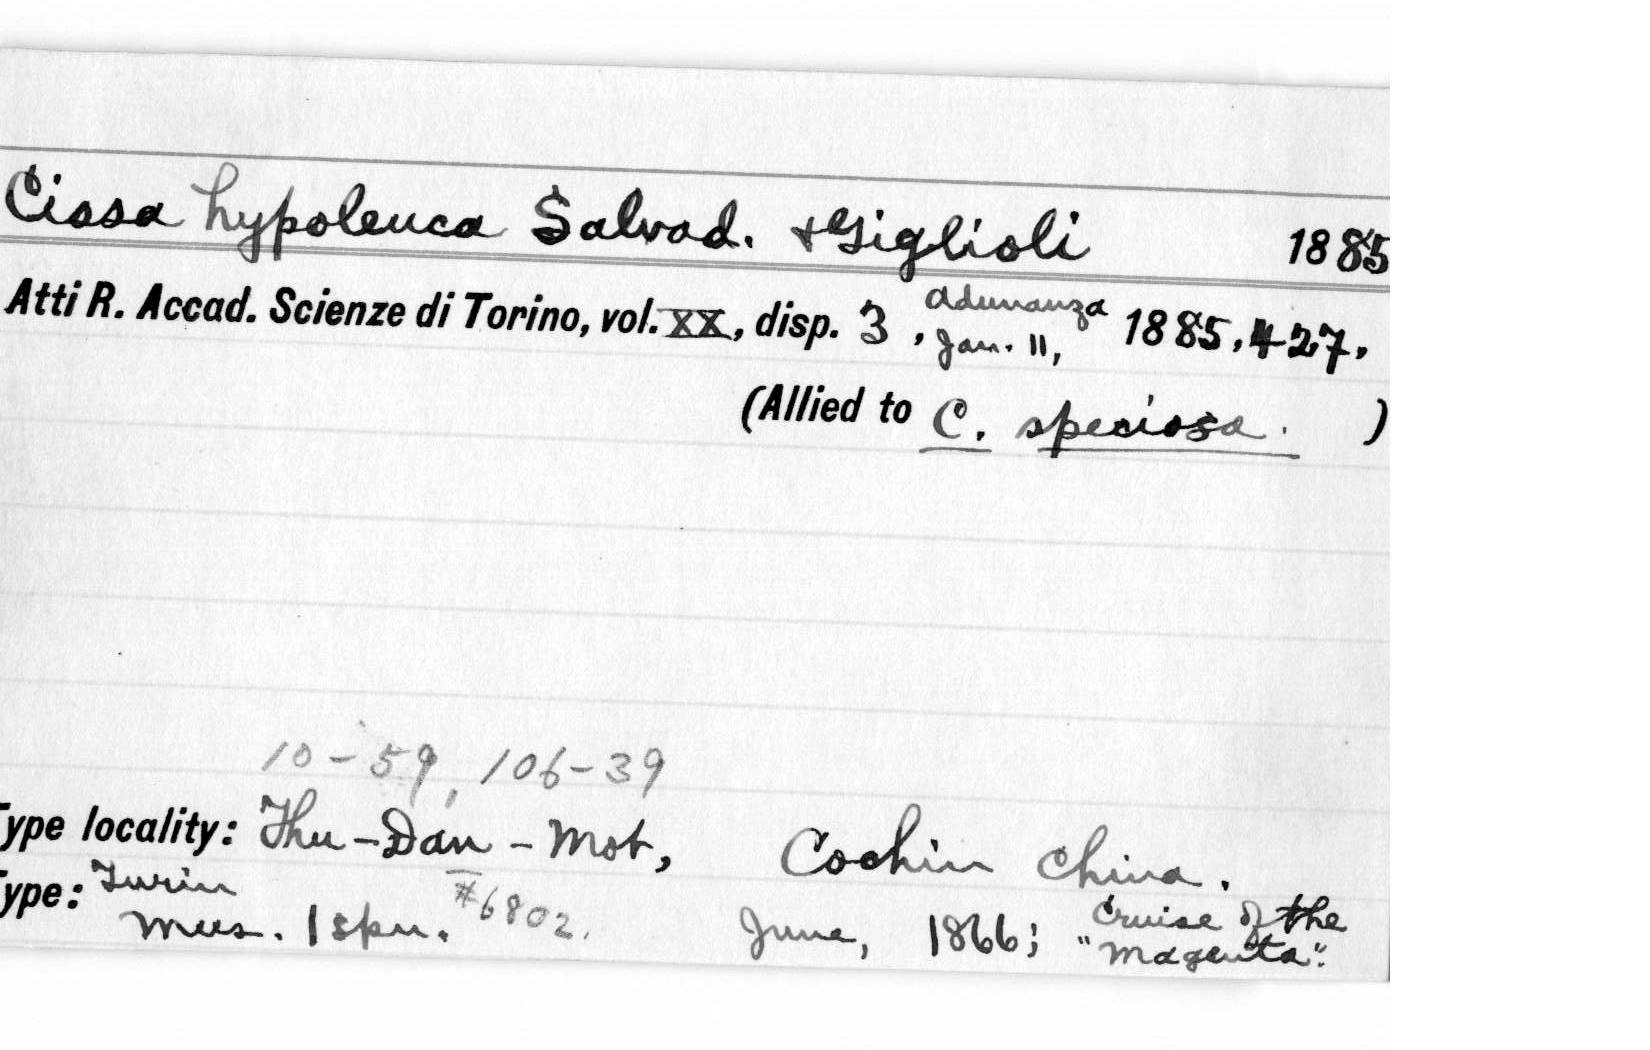 Cissa hypoleuca Salvad. + Giglioli 1885
Atti R. Accad. Scienze di Torino, vol. XX, disp. 3, adunanza Jan. 11, 1885, 427,
(Allied to C. speciosa. )
10-59, 106-39
Type locality: Thu-Dau-Mot, Cochin China.
Type: Turin Mus. 1 spn. #6802. June, 1866; Cruise of the "Magenta".